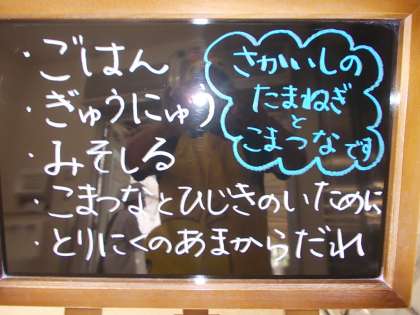 ・ごはん
・ぎゅうにゅう
・みそしる
・こまつなとひじきのいために
・とりにくのあまからだれ
さかいしの
たまねぎ
と
こまつなです